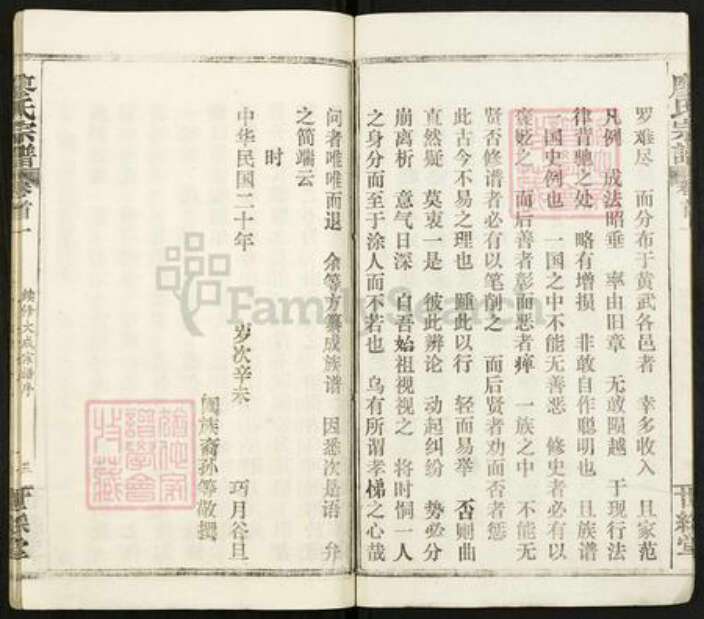 廖氏宗譜 卷首
世綵堂
罗难尽　而分布于黄武各邑者　幸多收入　且家范
凡例　成法昭垂　率由旧章　无敢陨越　于现行法
律背驰之处　略有增损　非敢自作聪明也　且族谱
一国史例也　一国之中不能无善恶　修史者必有以
褒贬之　而后善者彰而恶者瘅　一族之中　不能无
贤否修谱者必有以笔削之　而后贤者劝而否者惩
此古今不易之理也　踵此以行　轻而易举　否则曲
直然疑　莫衷一是　彼此辨论　动起纠纷　势必分
崩离析　意气日深　自吾始祖视视之　将时恫一人
之身分而至于涂人而不若也　乌有所谓孝悌之心哉
问者唯唯而退　余等方纂成族谱　因悉次是语　弁
之简端云
时
中华民国二十年　岁次辛未　巧月谷旦
阖族裔孙等敬撰
廖氏宗譜 卷首一
续修大成宗谱序
三
世綵堂
FamilySearch